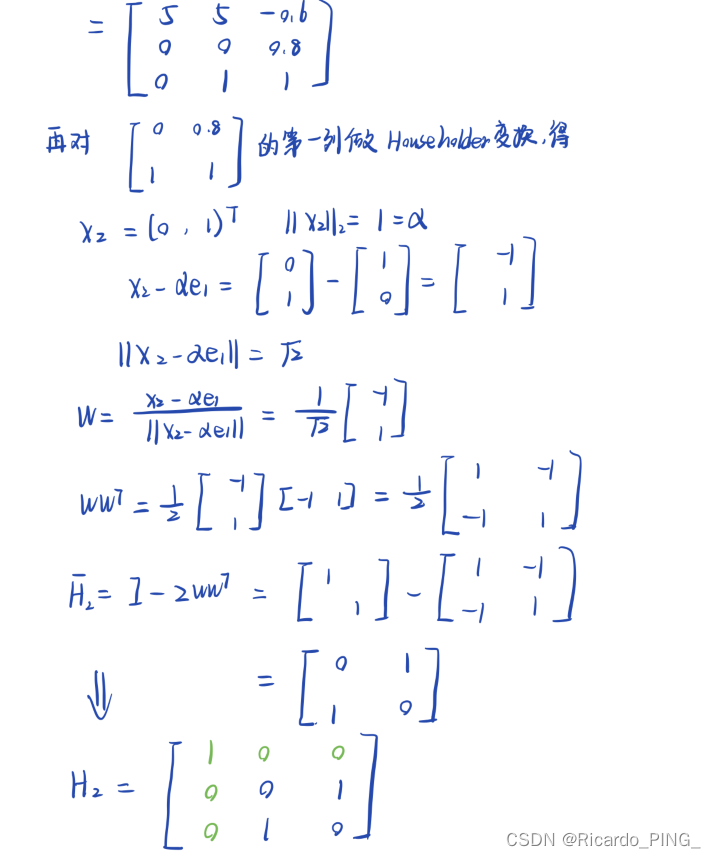 = [ 5 5 -0.6
0 0 0.8
0 1 1 ]
再对 [ 0 0.8
1 1 ] 的第一列做 Householder 变换,得
x₂ = (0, 1)ᵀ ‖x₂‖₂ = 1 = α
x₂ - αe₁ = [ 0
1 ] - [ 1
0 ] = [ -1
1 ]
‖x₂ - αe₁‖ = √2
W = (x₂ - αe₁) / ‖x₂ - αe₁‖ = 1/√2 [ -1
1 ]
WWᵀ = 1/2 [ -1
1 ] [-1 1] = 1/2 [ 1 -1
-1 1 ]
H̄₂ = I - 2wwᵀ = [ 1
1 ] - [ 1 -1
-1 1 ]
⇓ = [ 0 1
1 0 ]
H₂ = [ 1 0 0
0 0 1
0 1 0 ]
CSDN @Ricardo_PING_